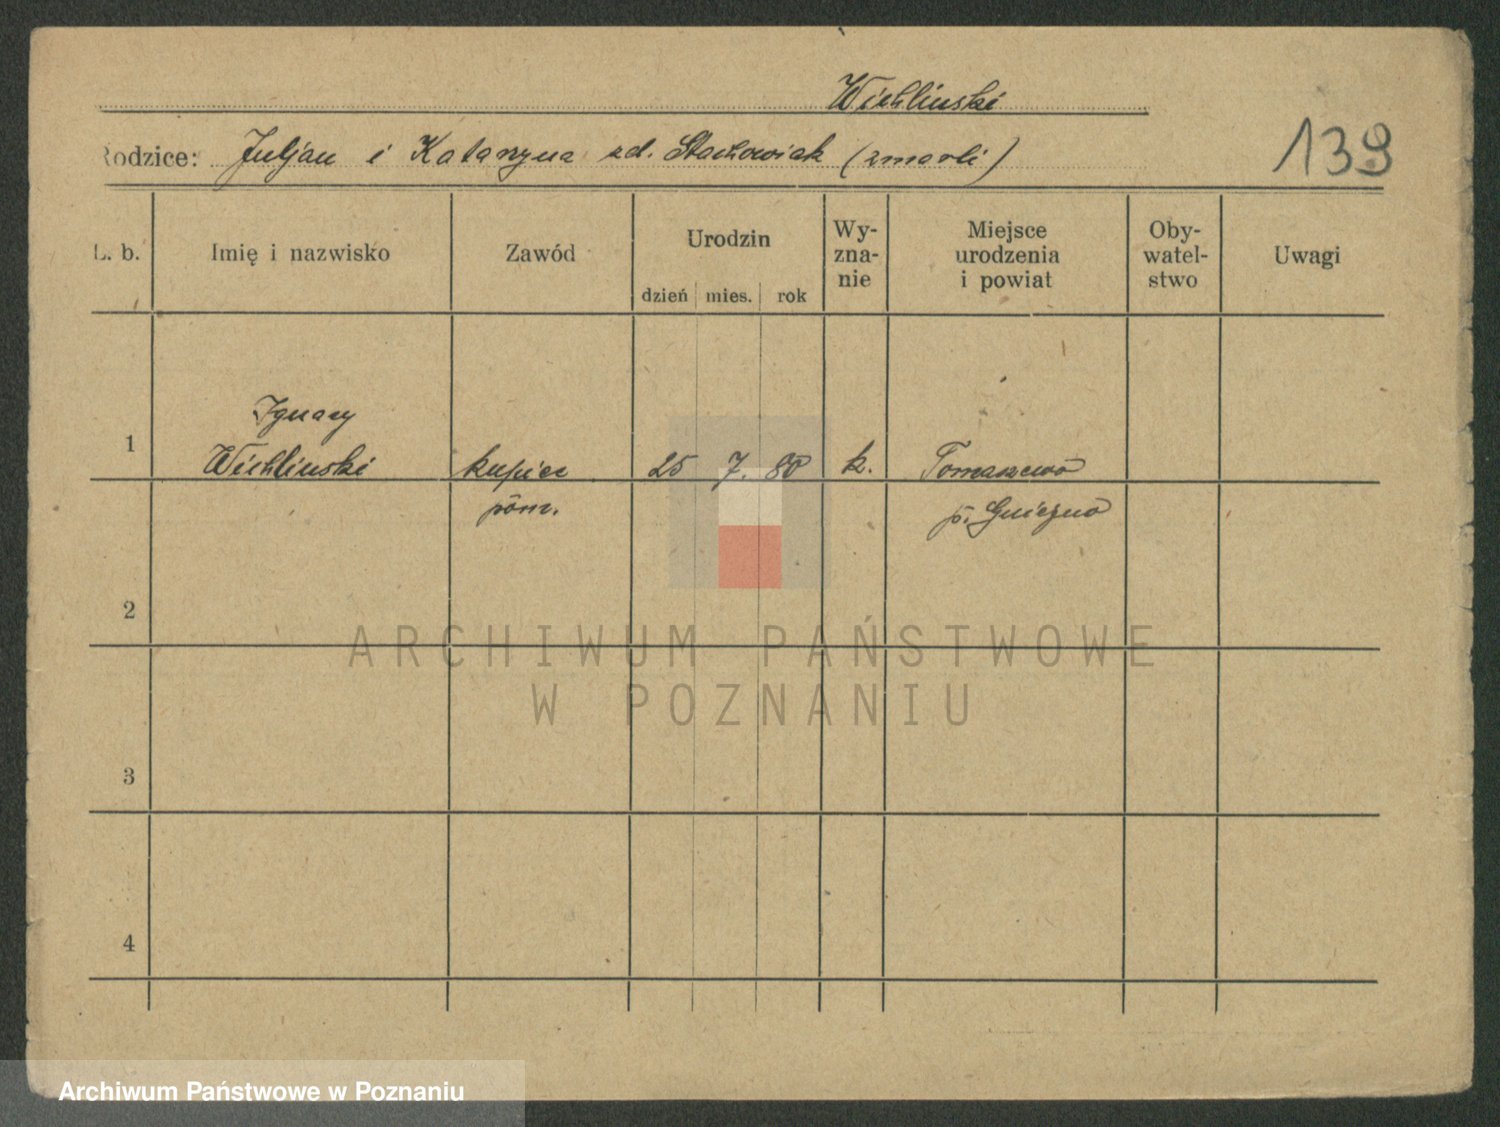 Wichlinski
Rodzice: Juljan i Katarzyna zd. Stachowiak (zmarli)
139
L. b.
Imię i nazwisko
Zawód
Urodzin
dzień mies. rok
Wy-
zna-
nie
Miejsce
urodzenia
i powiat
Oby-
watel-
stwo
Uwagi
1
Ignacy
Wichlinski
kupiec
pom.
25 7. 80
k.
Tomaszewo
p. Gniezno
2
3
4
ARCHIWUM PAŃSTWOWE
W POZNANIU
Archiwum Państwowe w Poznaniu